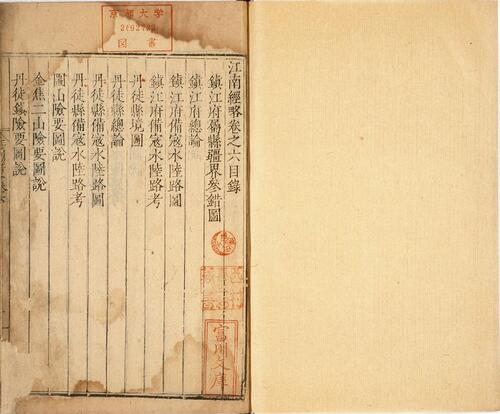 江南經略卷之六目錄
鎮江府屬縣疆界參錯圖
鎮江府總論
鎮江府備寇水陸路圖
鎮江府備寇水陸路考
丹徒縣境圖
丹徒縣總論
丹徒縣備寇水陸路圖
丹徒縣備寇水陸路考
圌山險要圖說
金焦二山險要圖說
丹徒鎮險要圖說
京都大学
図書
富川文庫